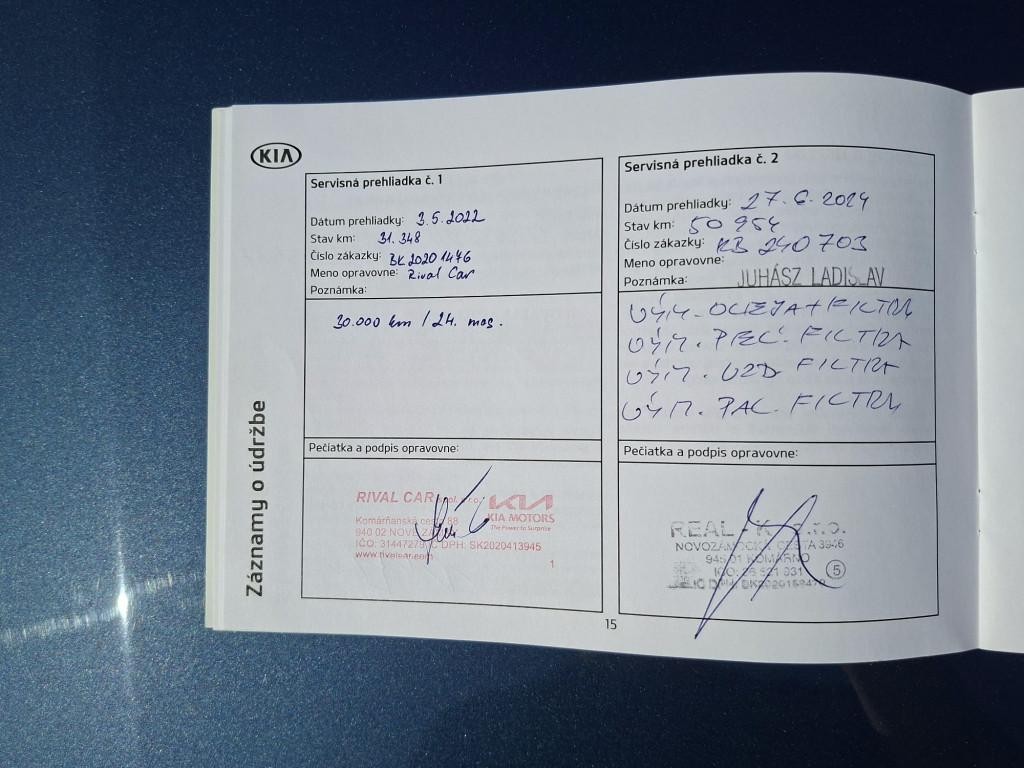 KIA
Záznamy o údržbe
Servisná prehliadka č. 1
Dátum prehliadky: 3.5.2022
Stav km: 31.348
Číslo zákazky: BK20201476
Meno opravovne: Rival Car
Poznámka:
30.000 km / 24. mes.
Pečiatka a podpis opravovne:
RIVAL CAR
KIA
KIA MOTORS
The Power to Surprise
Komárňanská cesta 88
940 02 NOVÉ
DPH: SK2020413945
1
Servisná prehliadka č. 2
Dátum prehliadky: 27.6.2024
Stav km: 50 954
Číslo zákazky: RB 240703
Meno opravovne:
Poznámka: JUHÁSZ LADISLAV
VÝM. OLEJA + FILTRA
VÝM. PEĽ. FILTRA
VÝM. VZD FILTRA
VÝM. PAL. FILTRA
Pečiatka a podpis opravovne:
REAL - K s.r.o.
NOVOZÁMOCKÁ CESTA 3946
945 01 KOMÁRNO
5
15